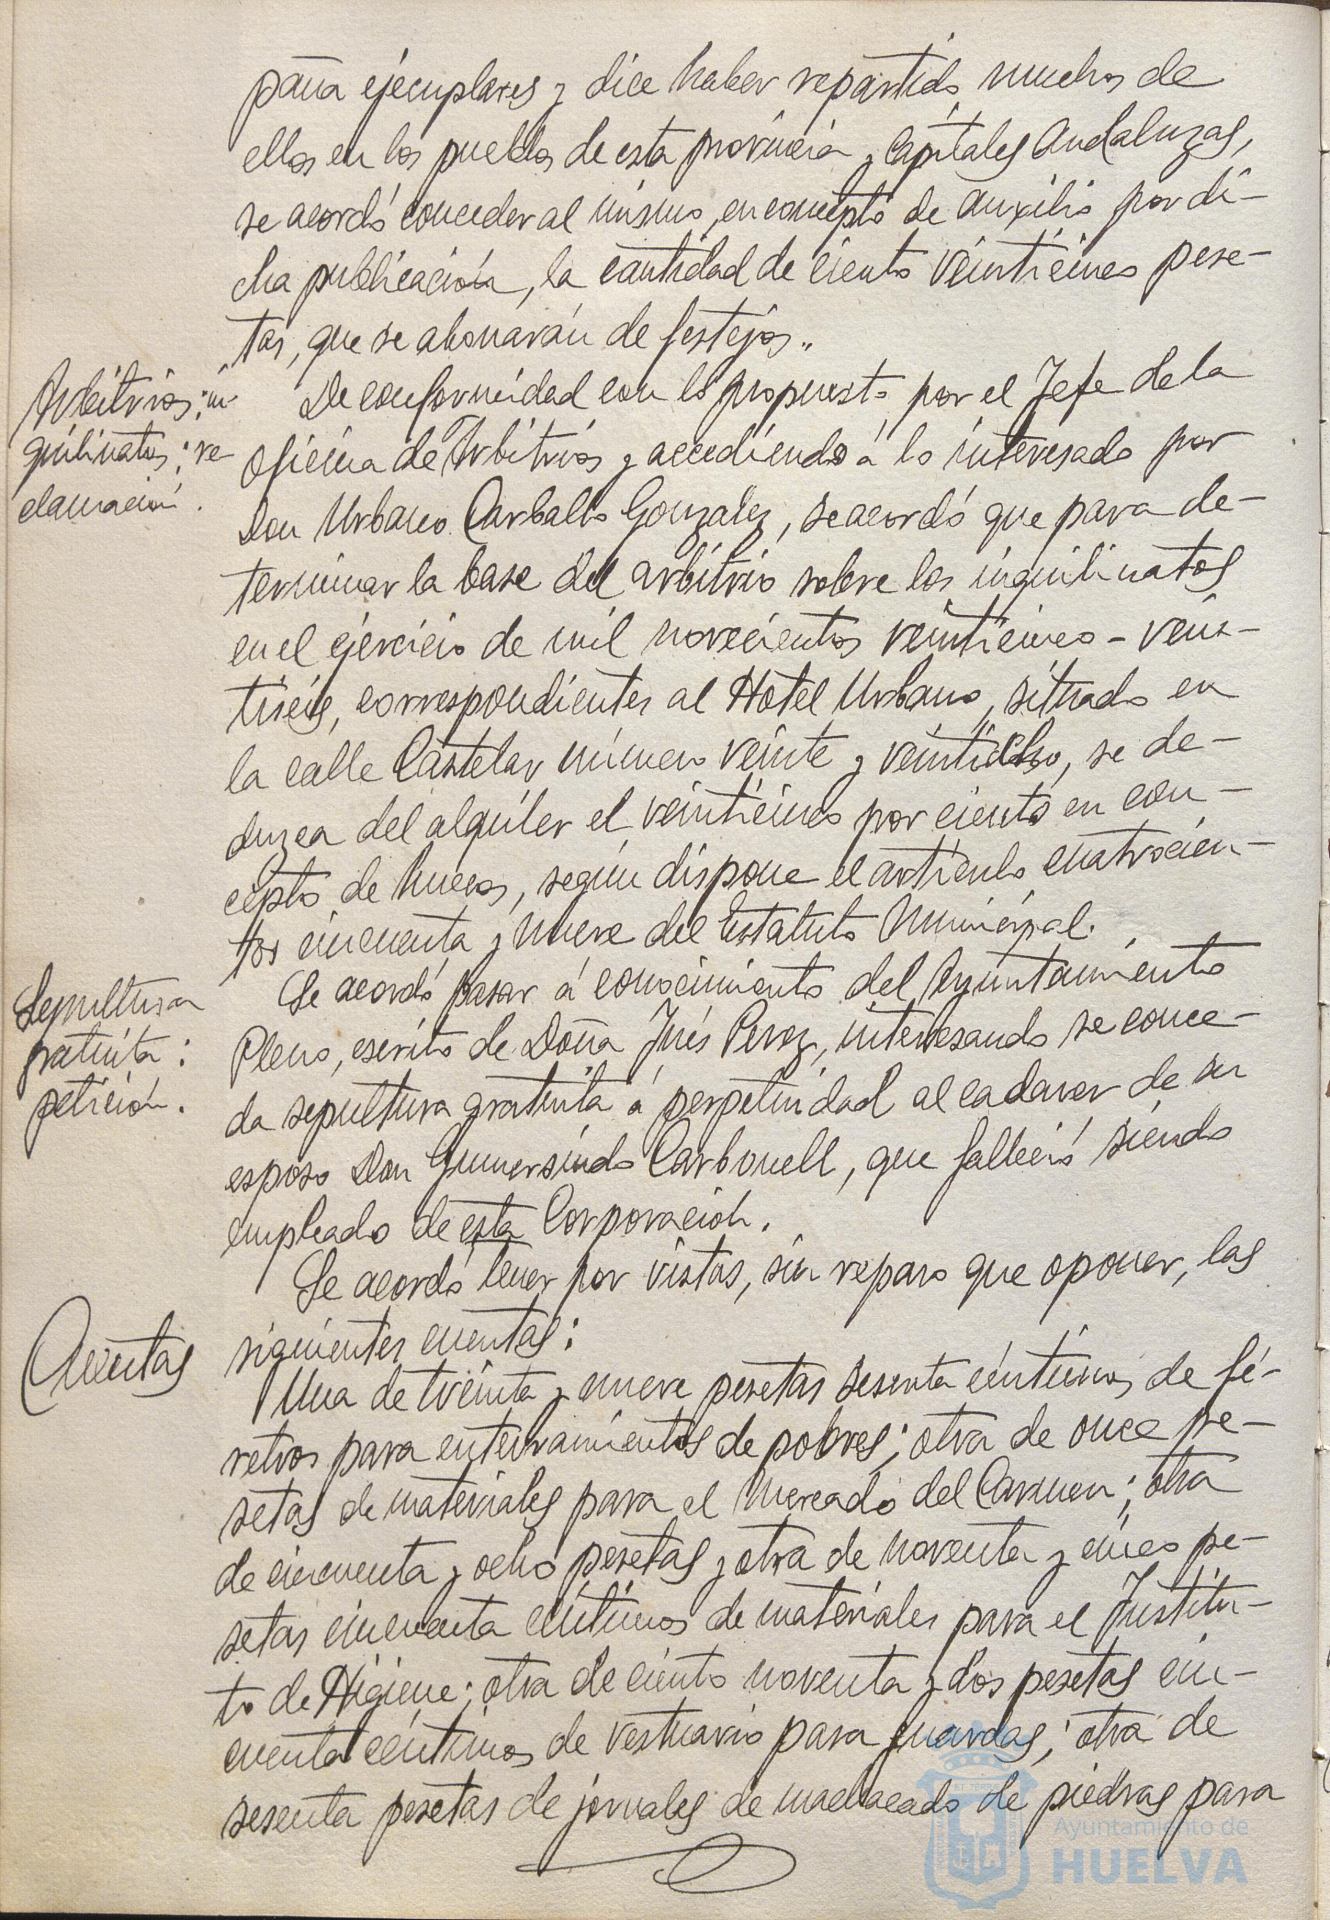 paña ejemplares y dice haber repartido muchos de
ellos en los pueblos de esta provincia y capitales Andaluzas,
se acordó conceder al mismo, en concepto de auxilio por di-
cha publicación, la cantidad de ciento veinticinco pese-
tas, que se abonarán de festejos.,
Arbitrios; in-
quilinatos; re-
clamación.
De conformidad con lo propuesto por el Jefe de la
oficina de Arbitrios y accediendo á lo interesado por
Don Urbano Carballo Gonzalez, se acordó que para de-
terminar la base del arbitrio sobre los inquilinatos
en el ejercicio de mil novecientos veinticinco-vein-
tiséis, correspondientes al Hotel Urbano, situado en
la calle Castelar número veinte y veintidos, se de-
duzca del alquiler el veinticinco por ciento en con-
cepto de huecos, según dispone el artículo cuatrocien-
tos cincuenta y nueve del Estatuto Municipal.
Sepultura
gratuita:
petición.
Se acordó pasar á conocimiento del Ayuntamiento
Pleno, escrito de Doña Inés Perez, interesando se conce-
da sepultura gratuita á perpetuidad al cadaver de su
esposo Don Gumersindo Carbonell, que falleció siendo
empleado de esta Corporación.
Cuentas
Se acordó tener por vistas, sin reparo que oponer, las
siguientes cuentas:
Una de treinta y nueve pesetas sesenta céntimos de fé-
retros para enterramientos de pobres; otra de once pe-
setas de materiales para el Mercado del Carmen; otra
de cincuenta y ocho pesetas y otra de noventa y cinco pe-
setas cincuenta céntimos de materiales para el Institu-
to de Higiene; otra de ciento noventa y dos pesetas cin-
cuenta céntimos de vestuario para guardas; otra de
sesenta pesetas de jornales de machacado de piedras para
Ayuntamiento de
HUELVA